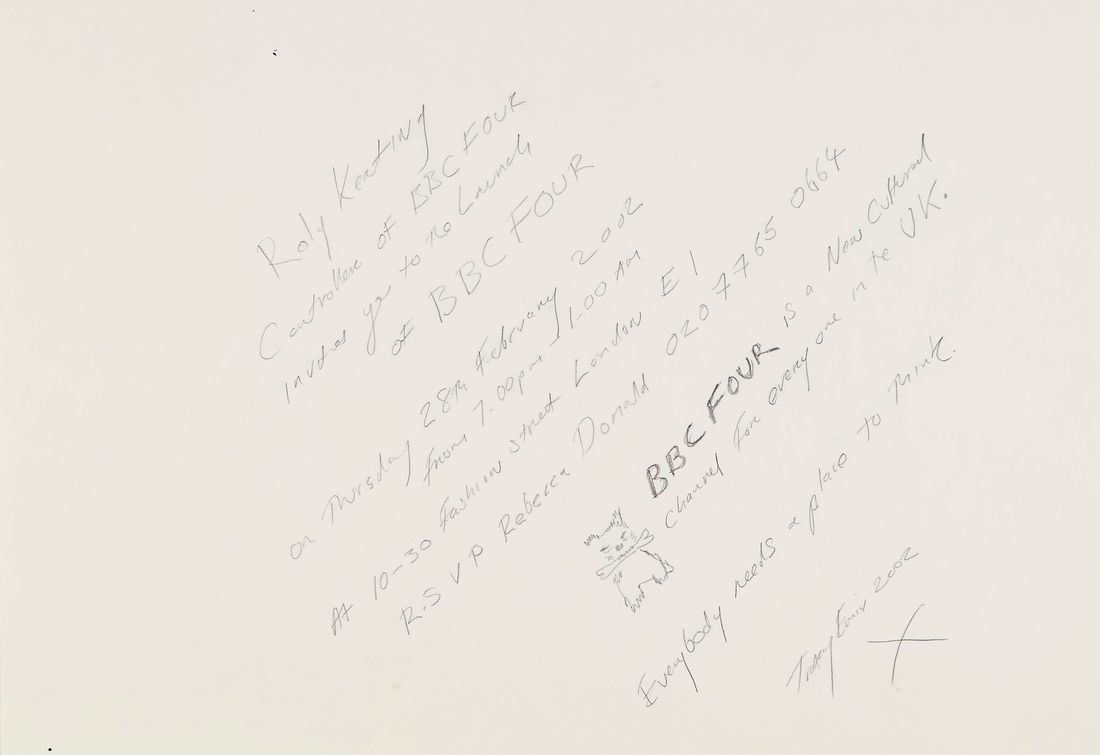 Roly Keating
Controller of BBC FOUR
invites you to the Launch
of BBC FOUR
on Thursday 28th February 2002
from 7-00pm - 1-00 Am
At 10-30 Fashion street London E1
R.S V P Rebecca Donald 020 7765 0664
BBC FOUR is a New Cultural
Channel For everyone in the UK.
Everybody needs a place to think.
Tracey Emin 2002
X